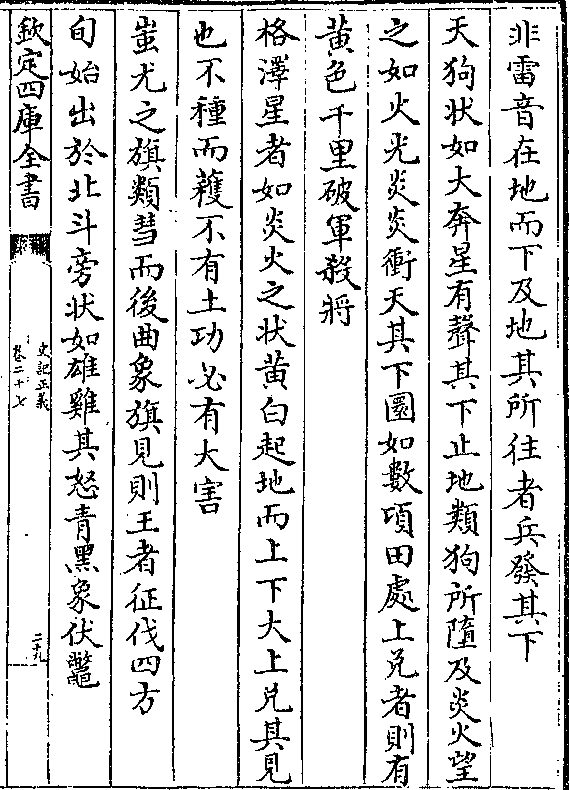 非雷音在地而下及地其所往者兵發其下
天狗狀如大奔星有聲其下止地類狗所墮及炎火望
之如火光炎炎衝天其下圜如數項田處上兊者則有
黄色千里破軍殺將
格澤星者如炎火之狀黄白起地而上下大上兊其見
也不種而穫不有土功必有大害
蚩尤之旗類彗而後曲象旗見則王者征伐四方
旬始出於北斗旁狀如雄雞其怒青黑象伏鼈
欽定四庫全書
史記正義
卷二十七
二十九